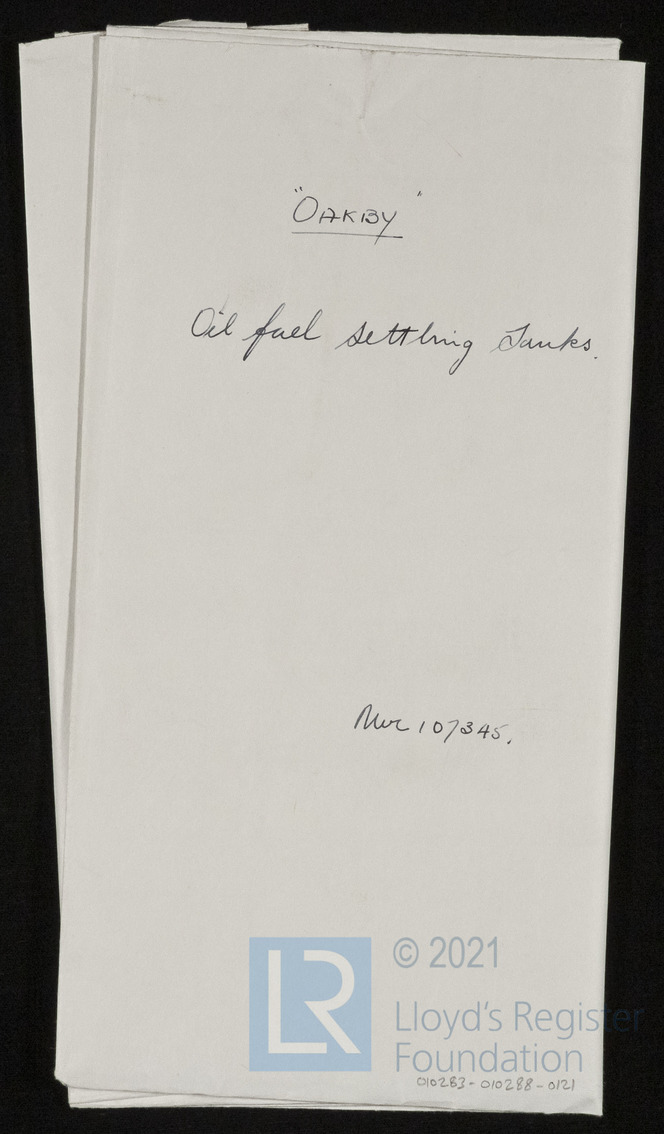 "OAKBY"
Oil fuel settling Tanks.
Nwc 107345.
LR
© 2021
Lloyd's Register
Foundation
010283-010288-0121